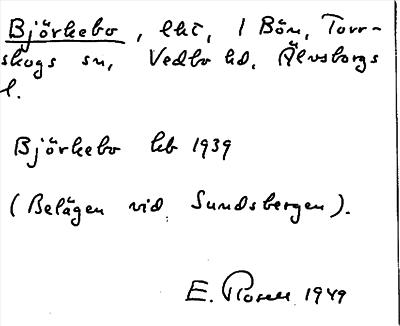 Björkebo, lht, 1 Bön, Torr-
skogs sn, Vedbo hd, Älvsborgs
l.
Björkebo kb 1939
(Belägen vid Sundsbergen).
E. Rosell 1949